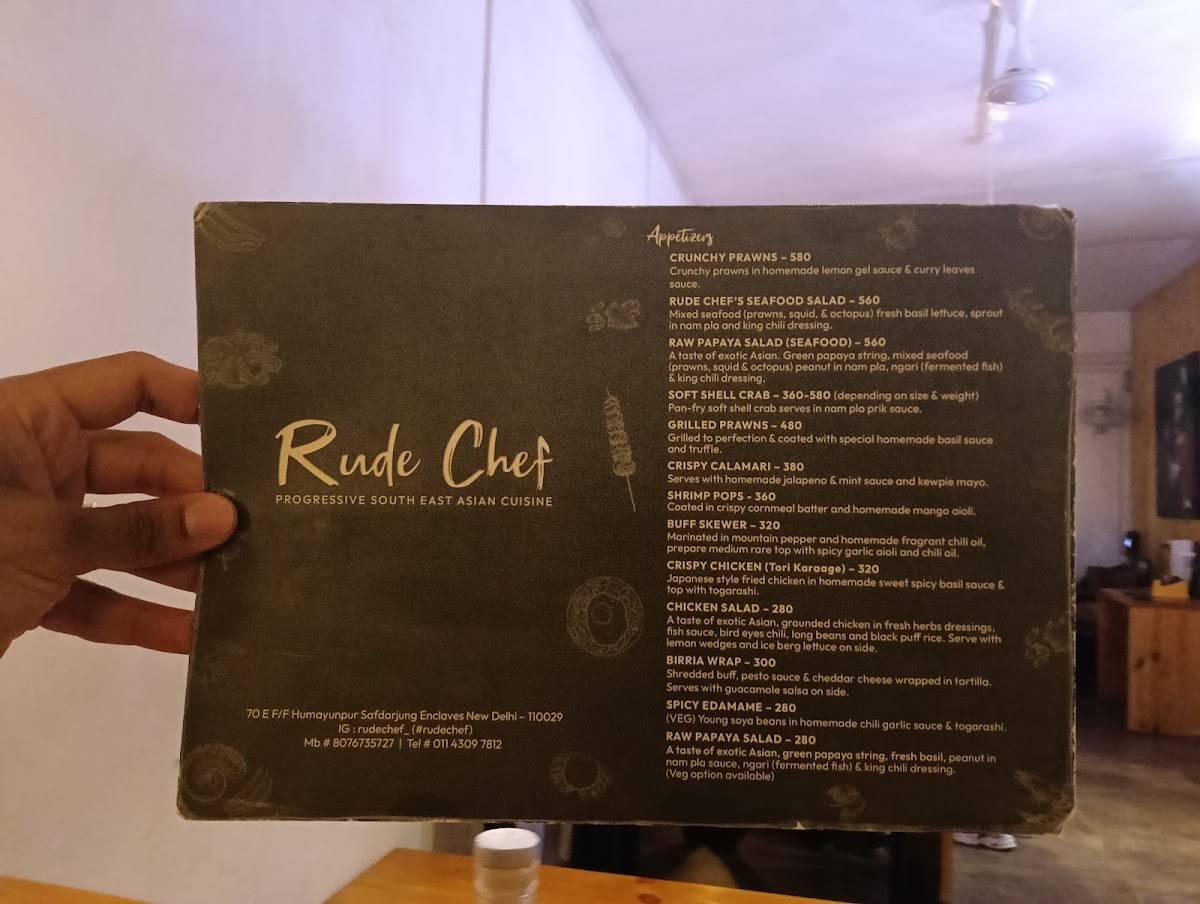 Rude Chef
PROGRESSIVE SOUTH EAST ASIAN CUISINE
70 E F/F Humayunpur Safdarjung Enclaves New Delhi - 110029
IG : rudechef_ (#rudechef)
Mb # 8076735727 | Tel # 011 4309 7812
Appetizers
CRUNCHY PRAWNS - 580
Crunchy prawns in homemade lemon gel sauce & curry leaves
sauce.
RUDE CHEF'S SEAFOOD SALAD - 560
Mixed seafood (prawns, squid, & octopus) fresh basil lettuce, sprout
in nam pla and king chili dressing.
RAW PAPAYA SALAD (SEAFOOD) - 560
A taste of exotic Asian. Green papaya string, mixed seafood
(prawns, squid & octopus) peanut in nam pla, ngari (fermented fish)
& king chili dressing,
SOFT SHELL CRAB - 360-580 (depending on size & weight)
Pan-fry soft shell crab serves in nam pla prik sauce.
GRILLED PRAWNS - 480
Grilled to perfection & coated with special homemade basil sauce
and truffle.
CRISPY CALAMARI - 380
Serves with homemade jalapeno & mint sauce and kewpie mayo.
SHRIMP POPS - 360
Coated in crispy cornmeal batter and homemade mango aioli.
BUFF SKEWER - 320
Marinated in mountain pepper and homemade fragrant chili oil,
prepare medium rare top with spicy garlic aioli and chili oil.
CRISPY CHICKEN (Tori Karaage) - 320
Japanese style fried chicken in homemade sweet spicy basil sauce &
top with togarashi.
CHICKEN SALAD - 280
A taste of exotic Asian, grounded chicken in fresh herbs dressings,
fish sauce, bird eyes chili, long beans and black puff rice. Serve with
lemon wedges and ice berg lettuce on side.
BIRRIA WRAP - 300
Shredded buff, pesto sauce & cheddar cheese wrapped in tortilla.
Serves with guacamole salsa on side.
SPICY EDAMAME - 280
(VEG) Young soya beans in homemade chili garlic sauce & togarashi.
RAW PAPAYA SALAD - 280
A taste of exotic Asian, green papaya string, fresh basil, peanut in
nam pla sauce, ngari (fermented fish) & king chili dressing.
(Veg option available)